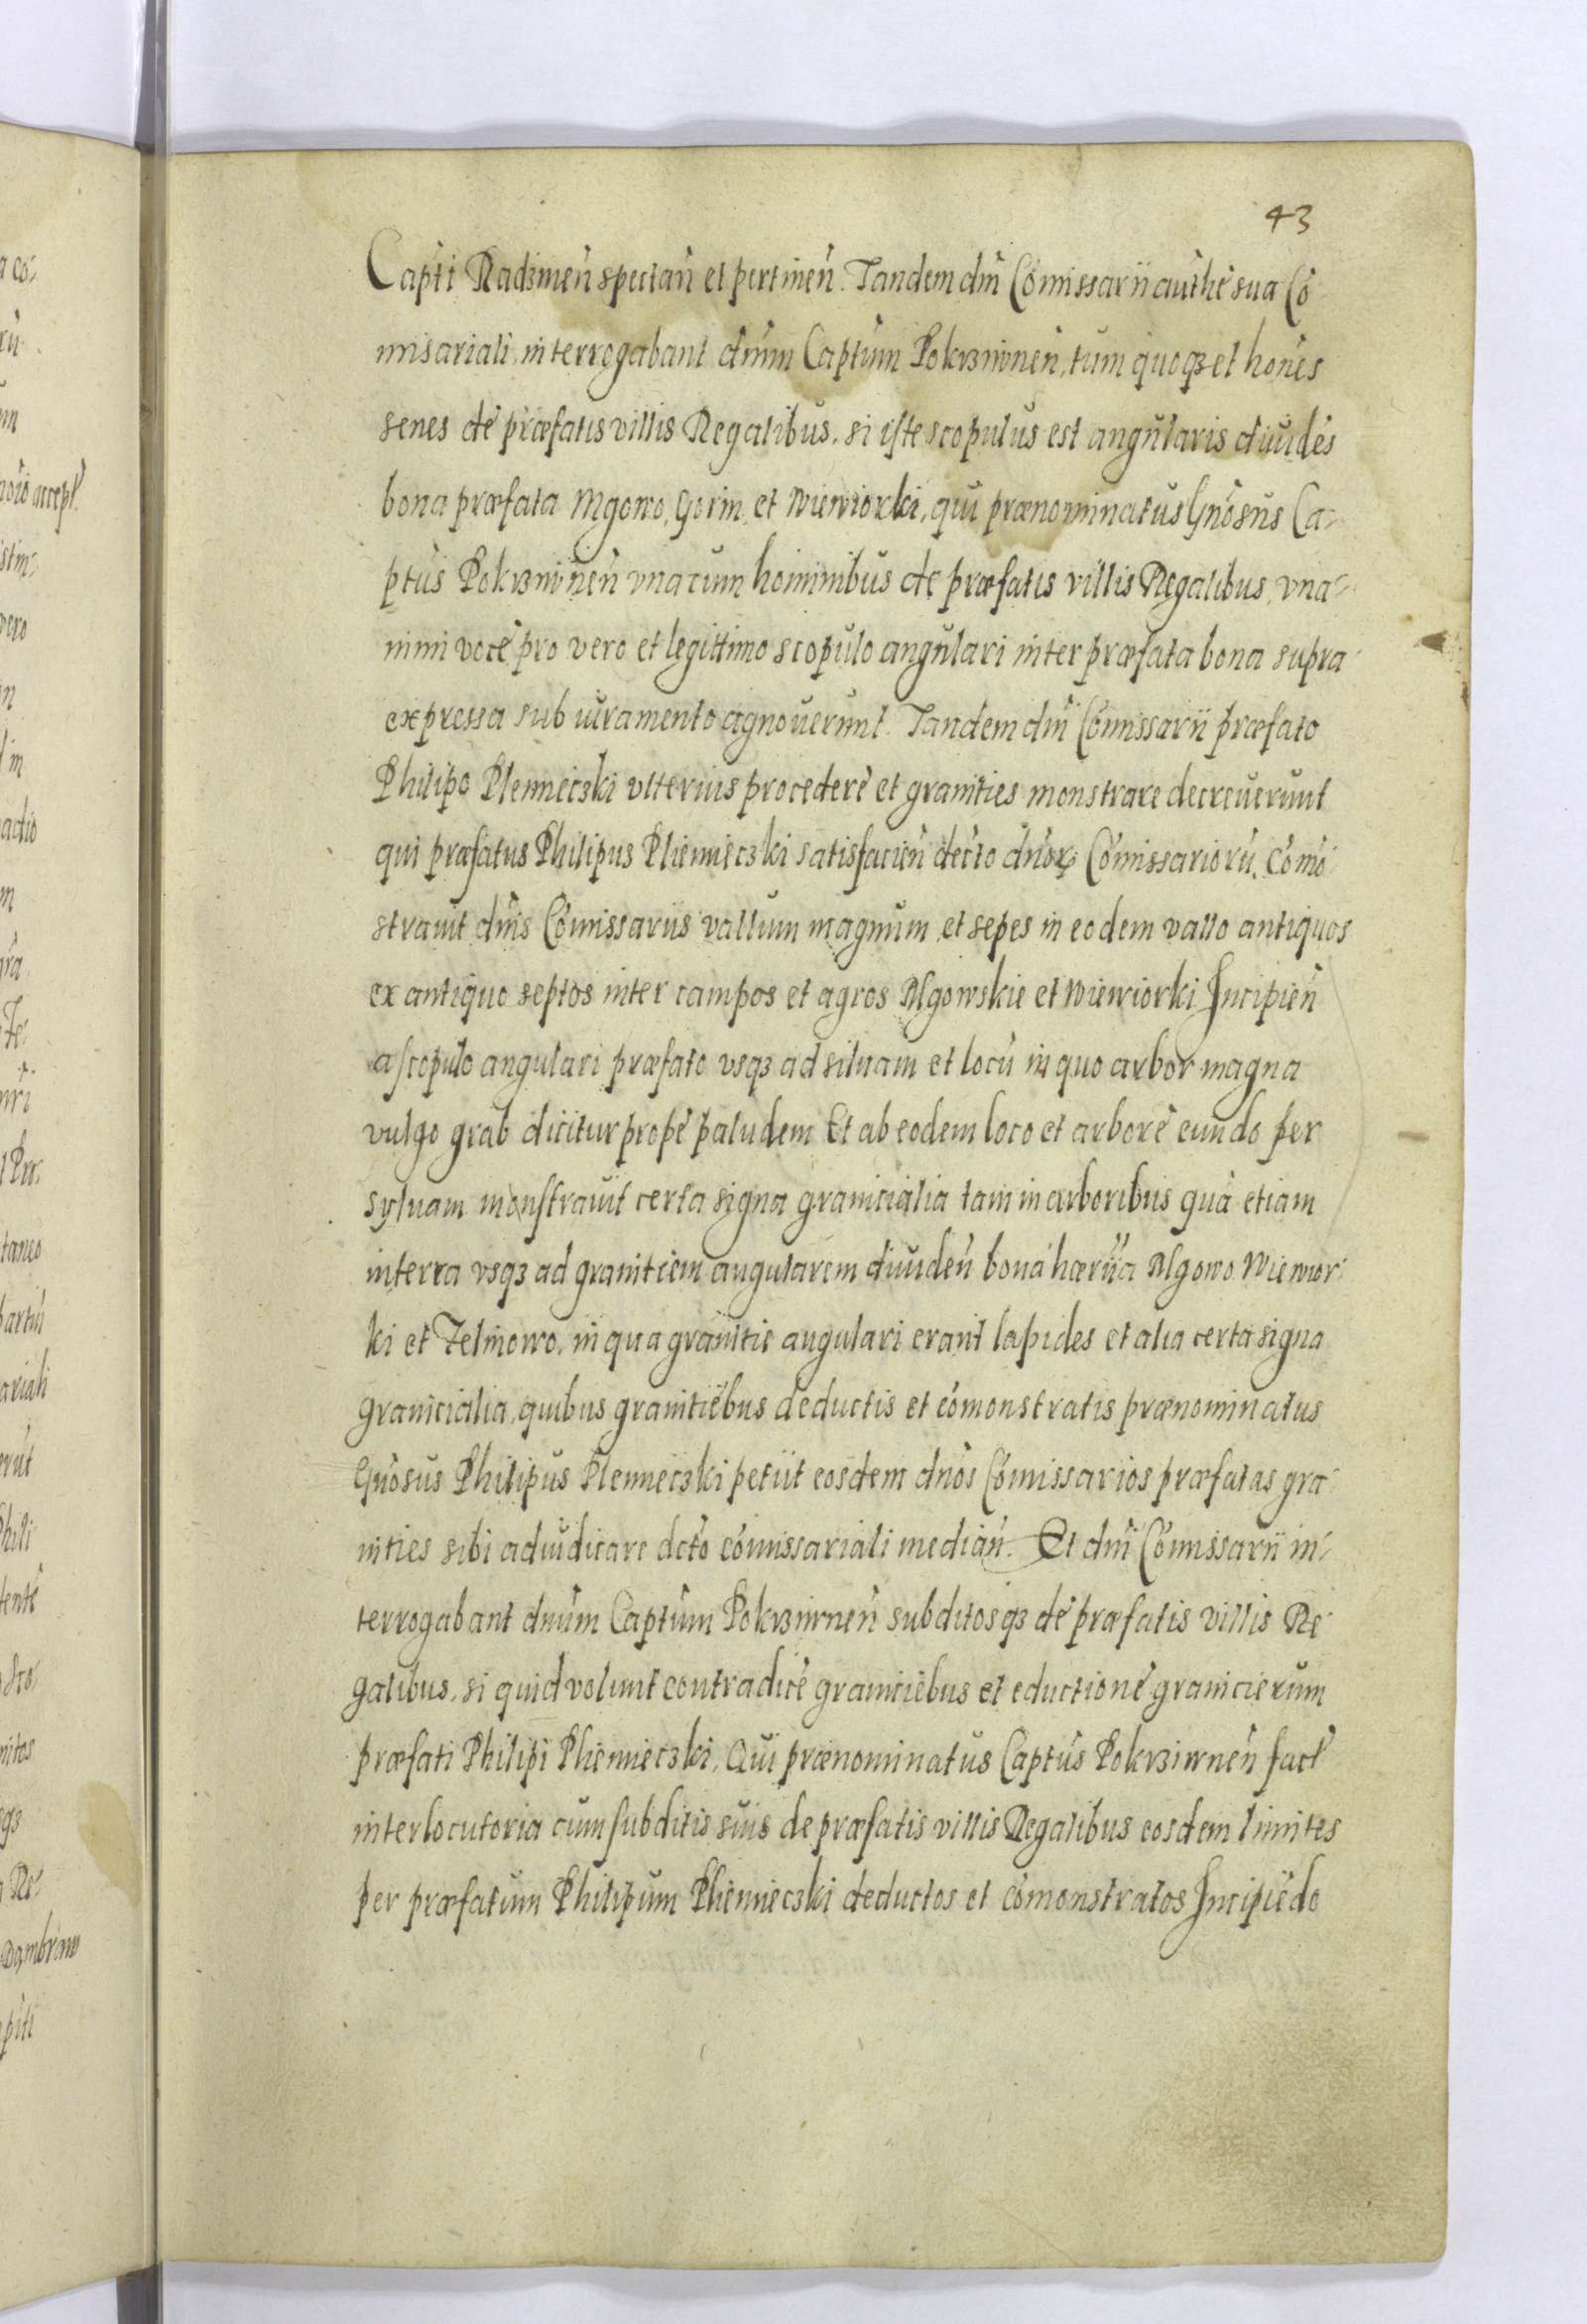 43
Capti Radzinen̄ spectan̄ et pertinen̄. Tandem dni Comissarii authe sua Co
misariali, interrogabant dnum Captum Pokrzivnen̄, tum quoqz et hones
senes de præfatis villis Regalibus, si iste scopulus est angularis diuides
bona præfata Mgowo, Gorin, et Wiewiorki, qui prænominatus Gnosus Ca-
ptus Pokrzivnen̄ vna cum hominibus de præfatis villis Regalibus, vna-
nimi voce pro vero et legittimo scopulo angulari inter præfata bona supra
expressa sub iuramento agnouerunt. Tandem dni Comissarii præfato
Philipo Plemieczki vlterius procedere et granities monstrare decreuerunt
qui præfatus Philipus Pliemieczki satisfacien̄ decto dnor Comissarioru, Como
strauit dnis Comissariis vallum magnum et sepes in eodem vallo antiquos
ex antiquo septos inter campos et agros Mgowskie et Wiewiorki Incipien̄
a scopulo angulari præfato vsqz ad siluam et locu in quo arbor magna
vulgo grab dicitur prope paludem Et ab eodem loco et arbore eundo per
syluam monstrauit certa signa granicialia tam in arboribus qua etiam
in terra vsqz ad granitiem angularem diuiden̄ bona hæriia Mgowo Wiewior-
ki et Zelinowo, in qua granitie angulari erant lapides et alia certa signa
granicialia, quibus granitiebus deductis et comonstratis prænominatus
Gnosus Philipus Plemieczki petiit eosdem dnos Comissarios præfatas gra
nities sibi adiudicare dcto comissariali median̄. Et dni Comissarii in-
terrogabant dnum Captum Pokrziwnen̄ subditosqz de præfatis villis Re
galibus, si quid volunt contradice graniciebus et eductione granicierum
præfati Philipi Pliemieczki, Qui prænominatus Captus Pokrziwnen̄ fact
interlocutoria cum subditis suis de præfatis villis Regalibus eosdem limites
per præfatum Philipum Pliemieczki deductos et comonstratos Incipiedo